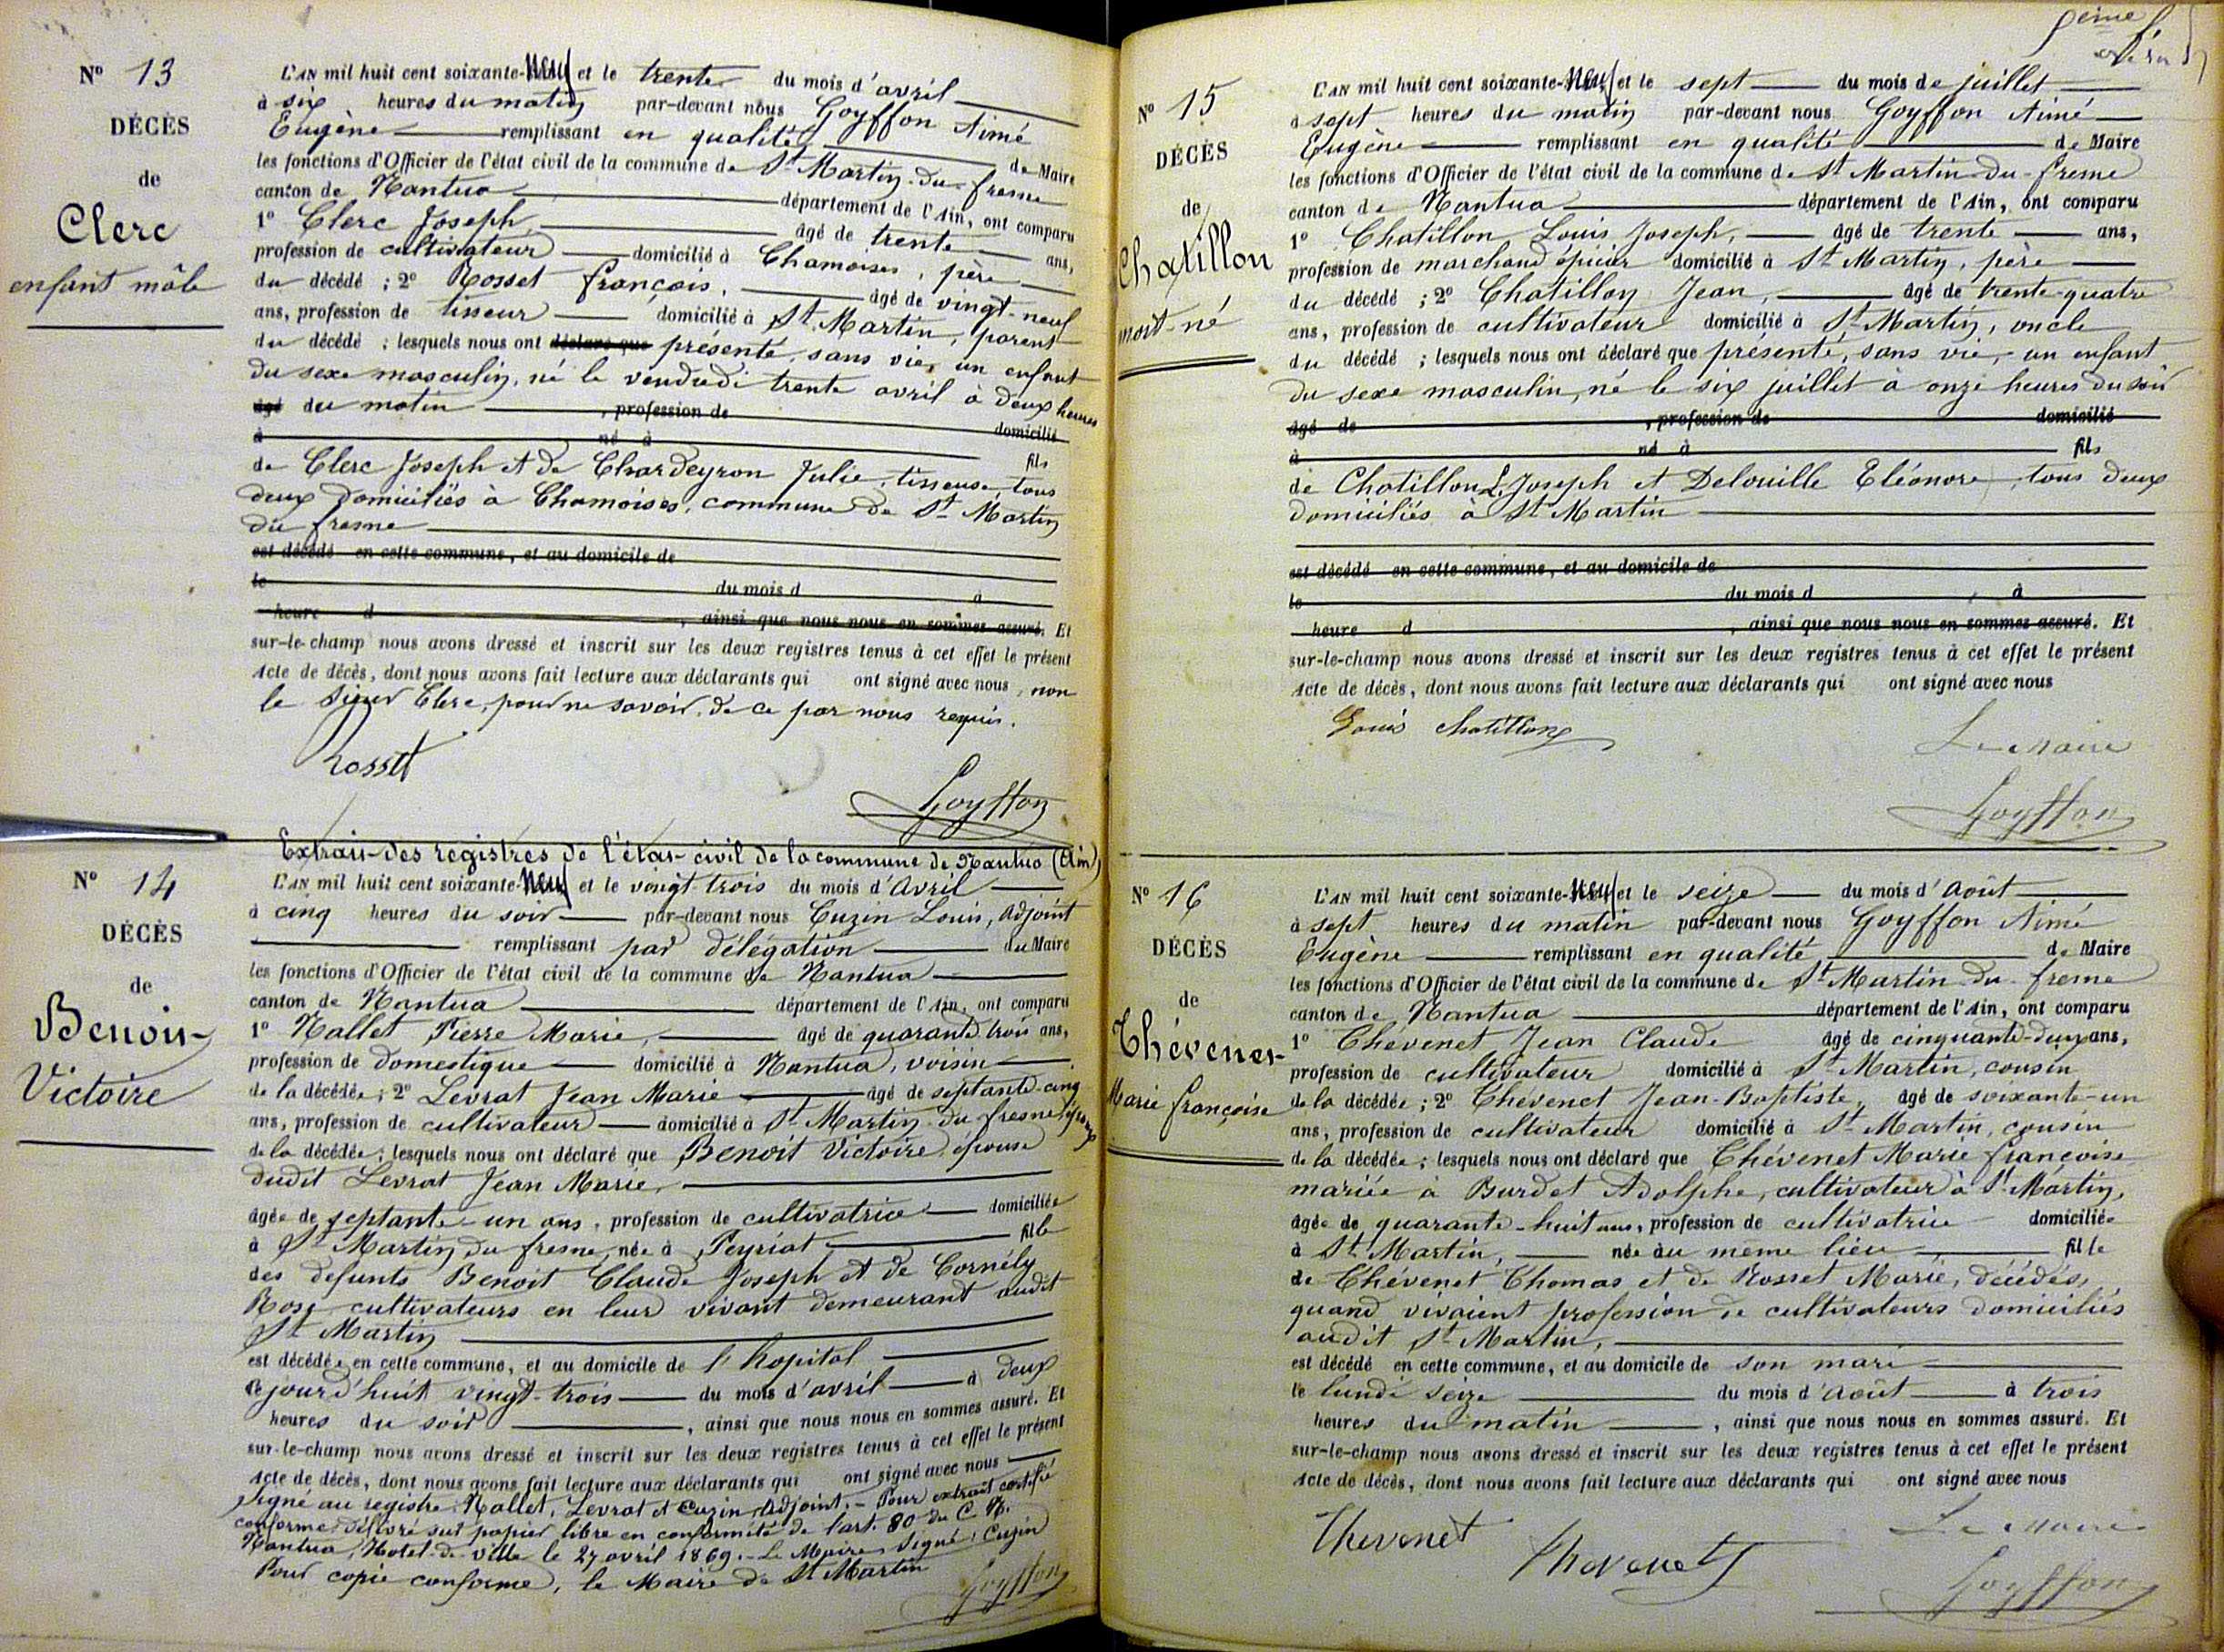 N° 13
DÉCÈS
de
Clerc
enfant mâle
L'AN mil huit cent soixante-Neuf et le trente du mois d'avril
à six heures du matin par-devant nous Goyffon Aimé
Eugène remplissant en qualité de Maire
les fonctions d'Officier de l'état civil de la commune de St Martin-du-fresne
canton de Nantua département de l'Ain, ont comparu
1° Clerc Joseph, âgé de trente ans,
profession de cultivateur domicilié à Chamoises, père
du décédé ; 2° Rosset françois, âgé de vingt-neuf
ans, profession de tisseur domicilié à St Martin, parent
du décédé ; lesquels nous ont déclaré que présenté, sans vie, un enfant
du sexe masculin, né le vendredi trente avril à deux heures
âgé du matin , profession de domicilié
à né à fils
de Clerc Joseph et de Chardeyron Julie, tisseuse, tous
deux domiciliés à Chamoises, commune de St Martin
du fresne
est décédé en cette commune, et au domicile de
le du mois d à
heure d , ainsi que nous nous en sommes assuré. Et
sur-le-champ nous avons dressé et inscrit sur les deux registres tenus à cet effet le présent
Acte de décès, dont nous avons fait lecture aux déclarants qui ont signé avec nous, non
le sieur Clerc, pour ne savoir, de ce par nous requis.
Rosset
Goyffon
N° 14
DÉCÈS
de
Benoit
Victoire
Extrait des registres de l'état civil de la commune de Nantua (Ain)
L'AN mil huit cent soixante-Neuf et le vingt trois du mois d'Avril
à cinq heures du soir par-devant nous Cuzin Louis, Adjoint
remplissant par délégation du Maire
les fonctions d'Officier de l'état civil de la commune de Nantua
canton de Nantua département de l'Ain, ont comparu
1° Nallet Pierre Marie, âgé de quarante trois ans,
profession de domestique domicilié à Nantua, voisin
de la décédée ; 2° Levrat Jean Marie âgé de septante-cinq
ans, profession de cultivateur domicilié à St Martin-du-fresne, époux
de la décédée ; lesquels nous ont déclaré que Benoit Victoire, épouse
dudit Levrat Jean Marie,
âgée de septante-un ans, profession de cultivatrice domiciliée
à St Martin du fresne, née à Peyriat fille
des défunts Benoit Claude Joseph et de Cornély
Rose, cultivateurs en leur vivant demeurant audit
St Martin
est décédée en cette commune, et au domicile de l'hopital
ce jourd'huit vingt-trois du mois d'avril à deux
heures du soir , ainsi que nous nous en sommes assuré. Et
sur-le-champ nous avons dressé et inscrit sur les deux registres tenus à cet effet le présent
Acte de décès, dont nous avons fait lecture aux déclarants qui ont signé avec nous
Signé au registre : Nallet, Levrat et Cuzin, Adjoint. – Pour extrait certifié
conforme délivré sur papier libre en conformité de l'art. 80 du C. N.
Nantua, Hotel-de-Ville le 27 avril 1869. – Le Maire, Signé : Cuzin
Pour copie conforme, le Maire de St Martin
Goyffon
N° 15
DÉCÈS
de
Chatillon
mort-né
L'AN mil huit cent soixante-Neuf et le sept du mois de juillet
à sept heures du matin par-devant nous Goyffon Aimé
Eugène remplissant en qualité de Maire
les fonctions d'Officier de l'état civil de la commune de St Martin-du-fresne
canton de Nantua département de l'Ain, ont comparu
1° Chatillon Louis Joseph, âgé de trente ans,
profession de marchand épicier domicilié à St Martin, père
du décédé ; 2° Chatillon Jean, âgé de trente-quatre
ans, profession de cultivateur domicilié à St Martin, oncle
du décédé ; lesquels nous ont déclaré que présenté, sans vie, un enfant
du sexe masculin, né le six juillet à onze heures du soir
âgé de , profession de domicilié
à né à fils
de Chatillon L. Joseph et Delouille Eléonore, tous deux
domiciliés à St Martin
est décédé en cette commune, et au domicile de
le du mois d à
heure d , ainsi que nous nous en sommes assuré. Et
sur-le-champ nous avons dressé et inscrit sur les deux registres tenus à cet effet le présent
Acte de décès, dont nous avons fait lecture aux déclarants qui ont signé avec nous
Louis Chatillon
Le Maire
Goyffon
N° 16
DÉCÈS
de
Thévenet
Marie françoise
L'AN mil huit cent soixante-Neuf et le seize du mois d'Août
à sept heures du matin par-devant nous Goyffon Aimé
Eugène remplissant en qualité de Maire
les fonctions d'Officier de l'état civil de la commune de St Martin-du-fresne
canton de Nantua département de l'Ain, ont comparu
1° Thévenet Jean Claude âgé de cinquante-deux ans,
profession de cultivateur domicilié à St Martin, cousin
de la décédée ; 2° Thévenet Jean-Baptiste, âgé de soixante-un
ans, profession de cultivateur domicilié à St Martin, cousin
de la décédée ; lesquels nous ont déclaré que Thévenet Marie françoise
mariée à Burdet Adolphe, cultivateur à St Martin,
âgée de quarante-huit ans, profession de cultivatrice domiciliée
à St Martin, née au même lieu, fille
de Thévenet Thomas et de Rosset Marie, décédés,
quand vivaient profession de cultivateurs domiciliés
audit St Martin,
est décédé en cette commune, et au domicile de son mari
le lundi seize du mois d'Août à trois
heures du matin , ainsi que nous nous en sommes assuré. Et
sur-le-champ nous avons dressé et inscrit sur les deux registres tenus à cet effet le présent
Acte de décès, dont nous avons fait lecture aux déclarants qui ont signé avec nous
Thevenet
Thevenet
Le Maire
Goyffon